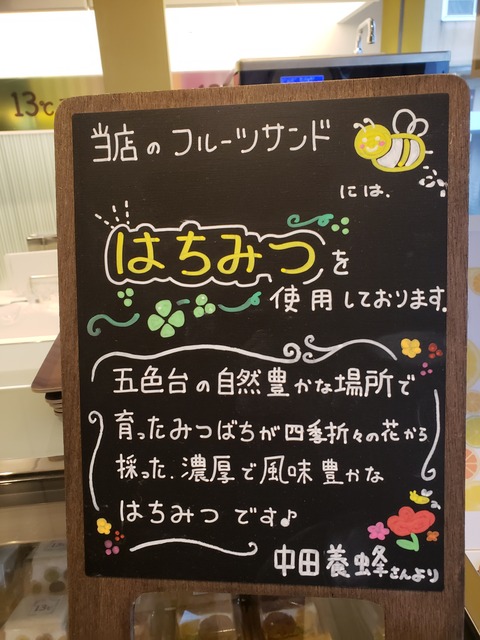 13℃
当店のフルーツサンド
には、
はちみつを
使用しております。
五色台の自然豊かな場所で
育ったみつばちが四季折々の花から
採った、濃厚で風味豊かな
はちみつです♪
中田養蜂さんより